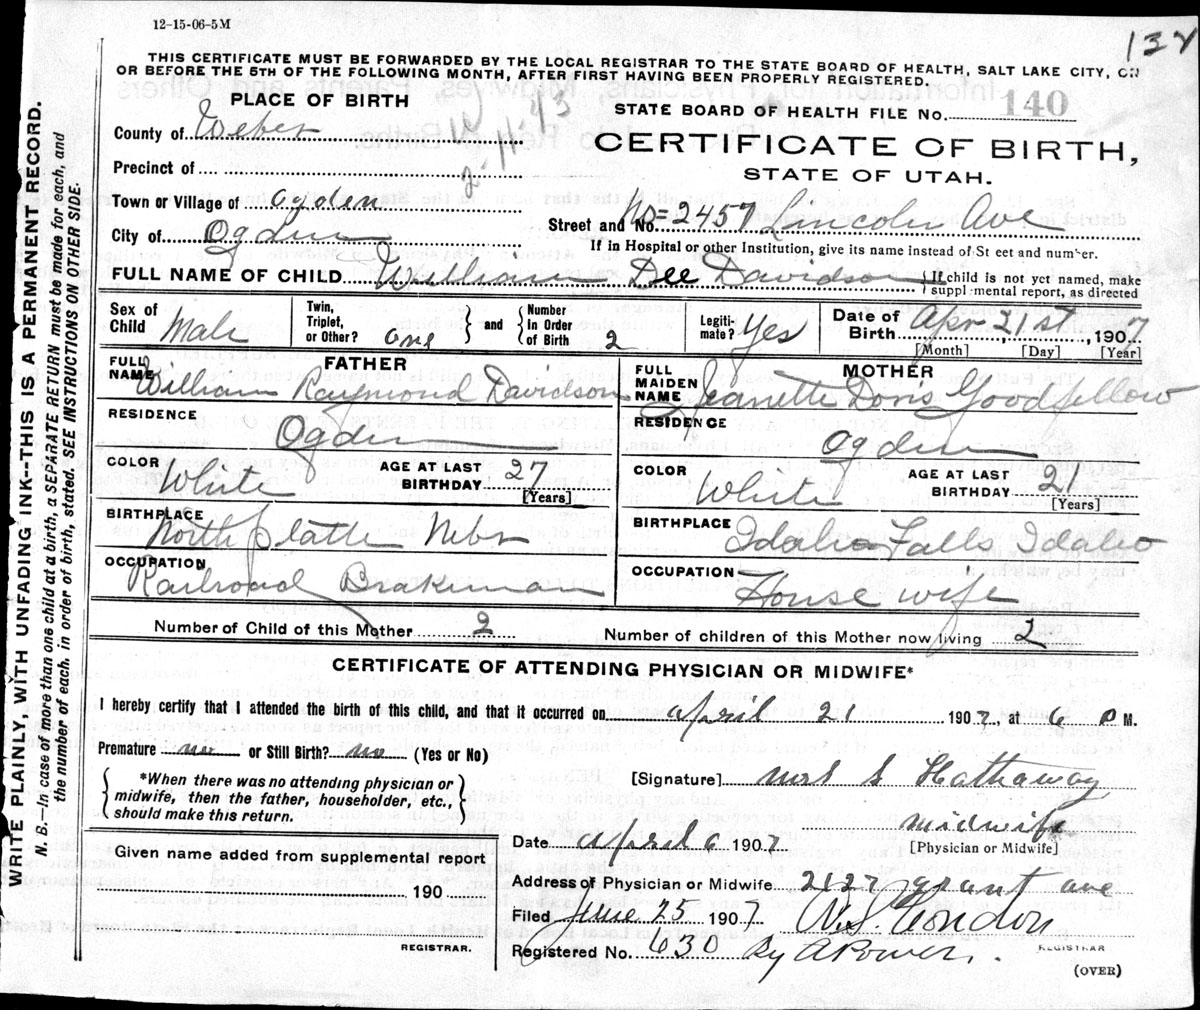 12-15-06-5M
137
THIS CERTIFICATE MUST BE FORWARDED BY THE LOCAL REGISTRAR TO THE STATE BOARD OF HEALTH, SALT LAKE CITY, ON
OR BEFORE THE 5TH OF THE FOLLOWING MONTH, AFTER FIRST HAVING BEEN PROPERLY REGISTERED.
PLACE OF BIRTH
STATE BOARD OF HEALTH FILE No. 140
County of Weber
2-11-43
CERTIFICATE OF BIRTH,
Precinct of
STATE OF UTAH.
Town or Village of Ogden
Street and No. No= 2457 Lincoln Ave
City of Ogden
If in Hospital or other Institution, give its name instead of St eet and number.
FULL NAME OF CHILD William Dee Davidson { If child is not yet named, make
suppl mental report, as directed
Sex of Child Male
Twin, Triplet, or Other? One
and Number in Order of Birth 2
Legiti-mate? Yes
Date of Birth Apr 21st, 1907
[Month] [Day] [Year]
FATHER
MOTHER
FULL NAME William Raymond Davidson
FULL MAIDEN NAME Jeanette Doris Goodfellow
RESIDENCE Ogden
RESIDENCE Ogden
COLOR White AGE AT LAST BIRTHDAY 27 [Years]
COLOR White AGE AT LAST BIRTHDAY 21 [Years]
BIRTHPLACE North Platte Nebr
BIRTHPLACE Idaho Falls Idaho
OCCUPATION Railroad Brakeman
OCCUPATION House wife
Number of Child of this Mother 2
Number of children of this Mother now living 2
CERTIFICATE OF ATTENDING PHYSICIAN OR MIDWIFE*
I hereby certify that I attended the birth of this child, and that it occurred on April 21 1907, at 6 P M.
Premature no or Still Birth? no (Yes or No)
*When there was no attending physician or
midwife, then the father, householder, etc.,
should make this return.
[Signature] Mrs S Hathaway
midwife
Date April 6 1907
[Physician or Midwife]
Given name added from supplemental report
190
REGISTRAR.
Address of Physician or Midwife 2127 grant ave
Filed June 25 1907
REGISTRAR
Registered No. 630 By
(OVER)
WRITE PLAINLY, WITH UNFADING INK--THIS IS A PERMANENT RECORD.
N. B.—In case of more than one child at a birth, a SEPARATE RETURN must be made for each, and
the number of each, in order of birth, stated SEE INSTRUCTIONS ON OTHER SIDE.